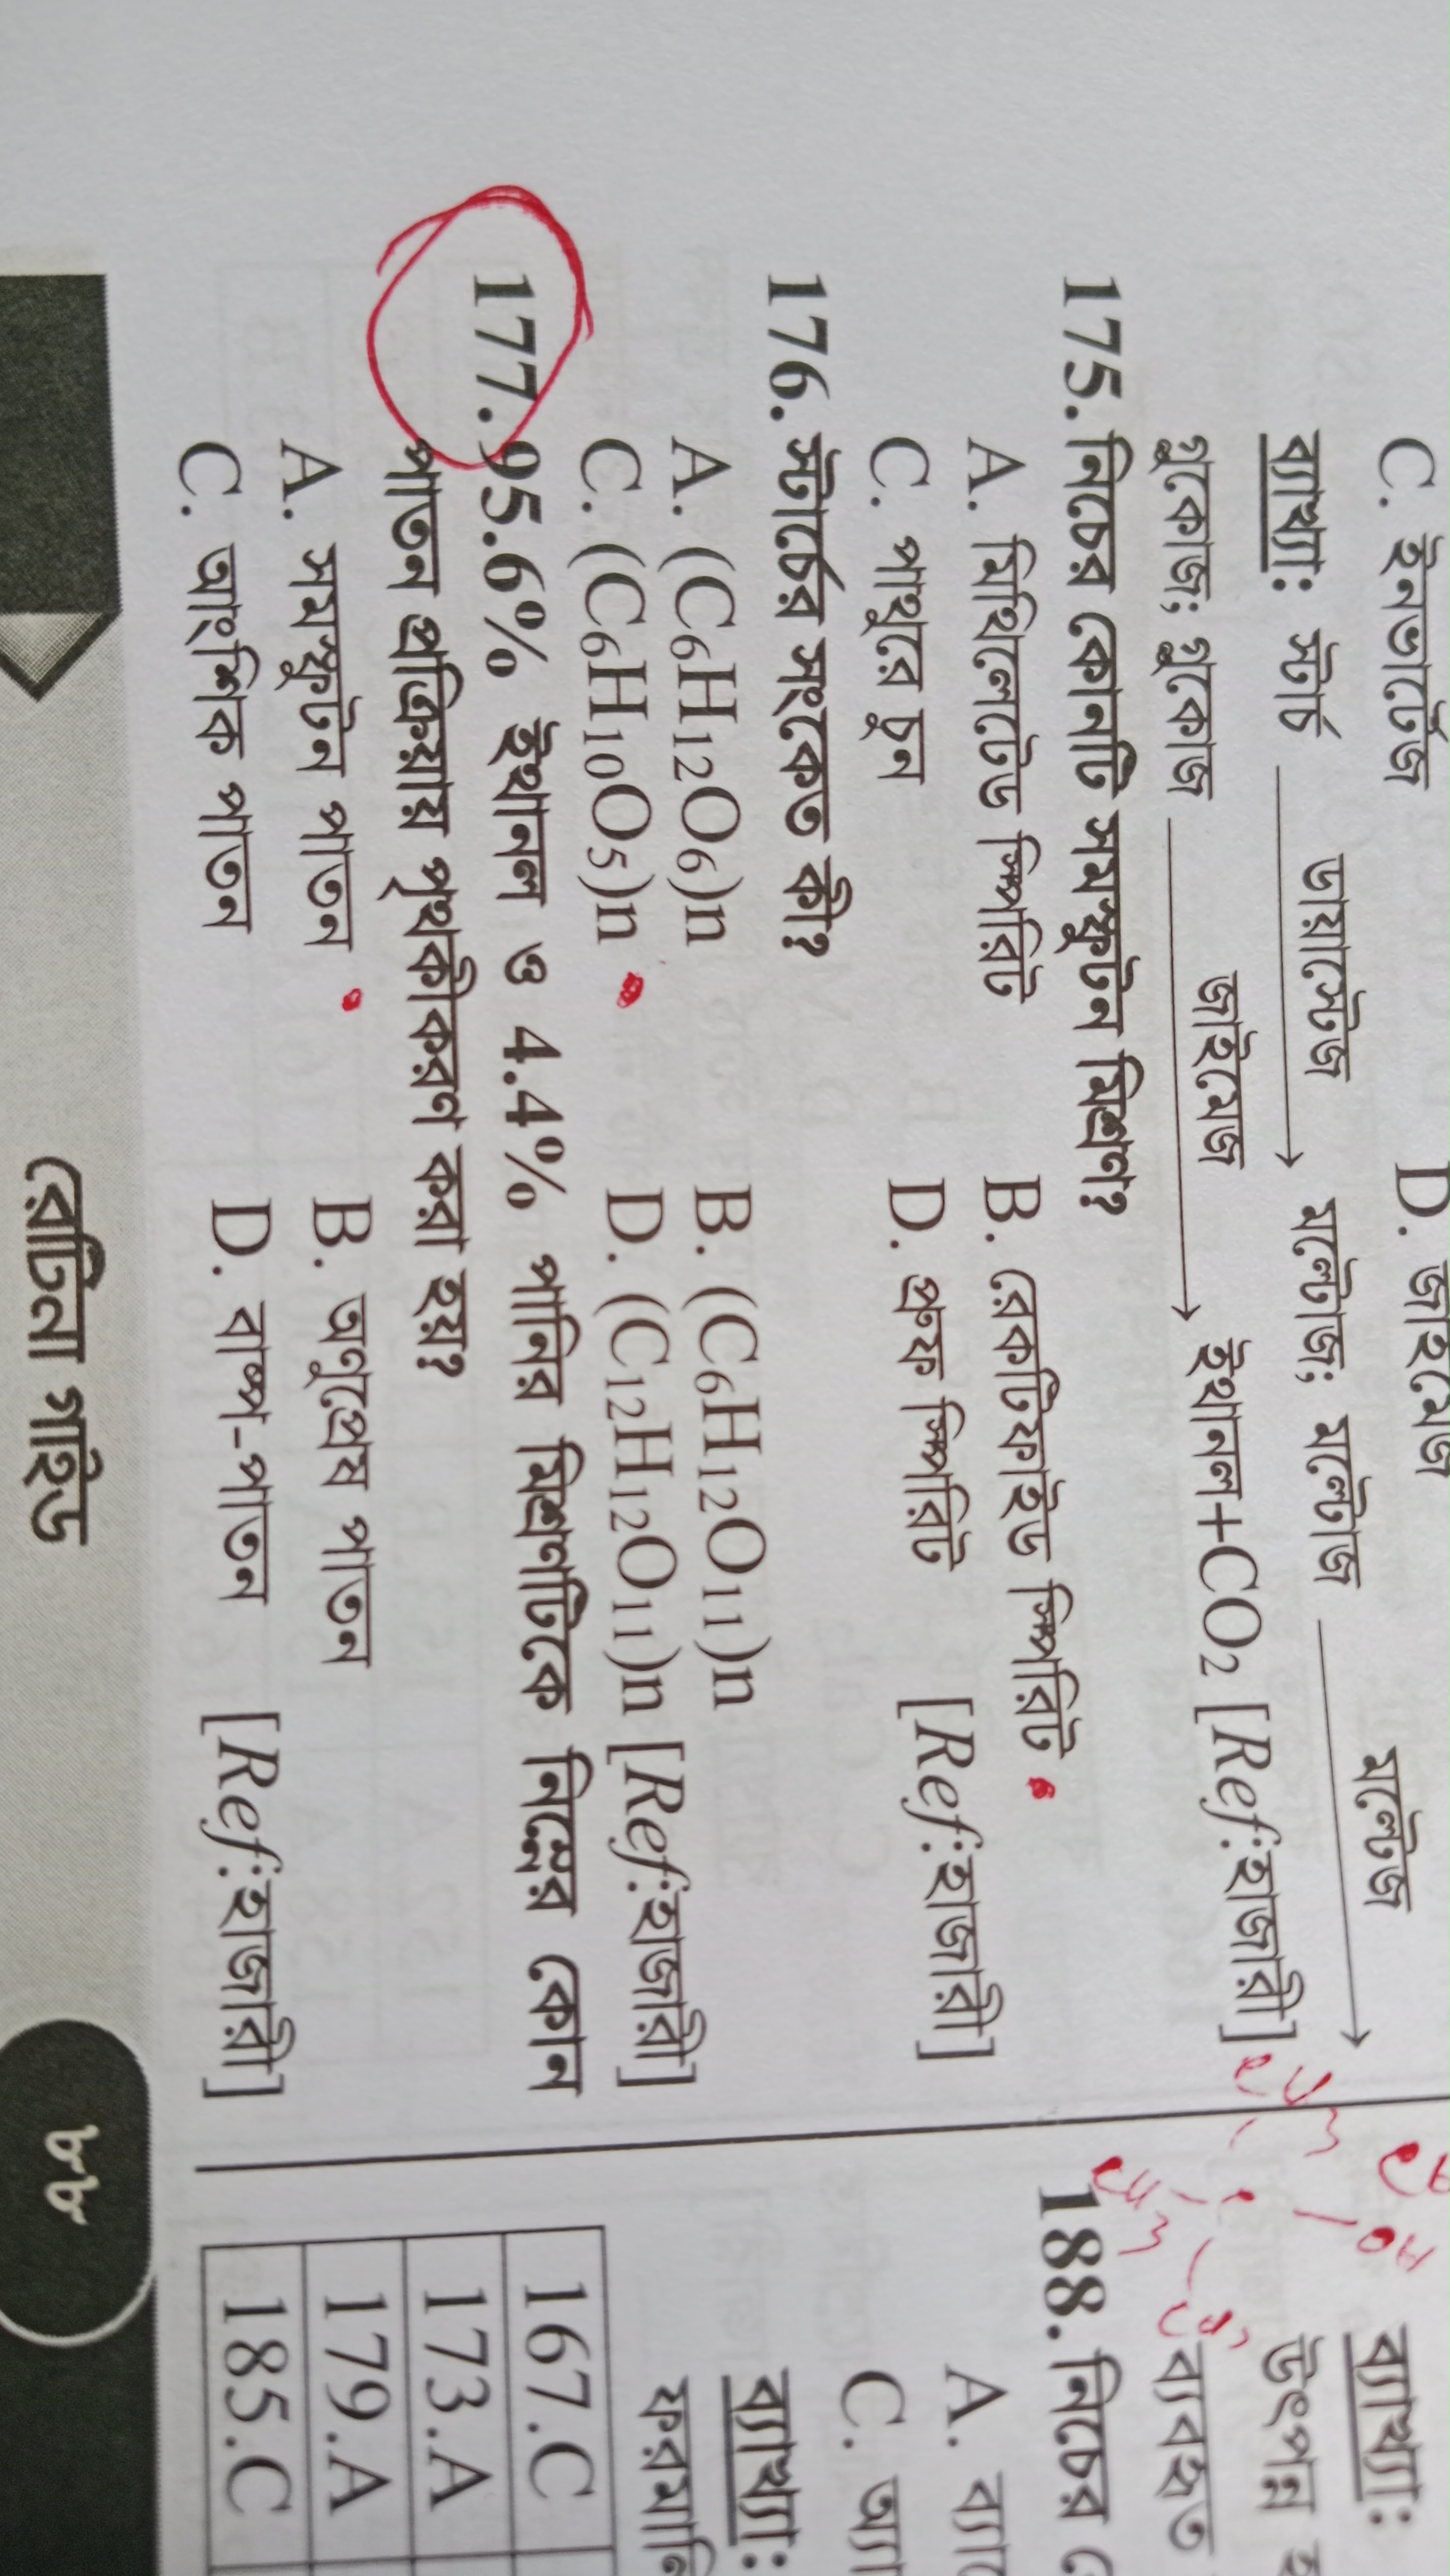 C. ইনভার্টেজ
D. জাইমেজ
ব্যাখ্যা: স্টার্চ ডায়াস্টেজ → মল্টোজ; মল্টোজ মল্টেজ →
গ্লুকোজ; গ্লুকোজ জাইমেজ → ইথানল+CO₂ [Ref:হাজারী]
175. নিচের কোনটি সমস্ফুটন মিশ্রণ?
A. মিথিলেটেড স্পিরিট
B. রেকটিফাইড স্পিরিট
C. পাথুরে চুন
D. প্রুফ স্পিরিট [Ref:হাজারী]
176. স্টার্চের সংকেত কী?
A. (C₆H₁₂O₆)n
B. (C₆H₁₂O₁₁)n
C. (C₆H₁₀O₅)n
D. (C₁₂H₁₂O₁₁)n [Ref:হাজারী]
177. 95.6% ইথানল ও 4.4% পানির মিশ্রণটিকে নিম্নের কোন
পাতন প্রক্রিয়ায় পৃথকীকরণ করা হয়?
A. সমস্ফুটন পাতন
B. অণুপ্রেষ পাতন
C. আংশিক পাতন
D. বাষ্প-পাতন [Ref:হাজারী]
রেটিনা গাইড
ব্যাখ্যা:
উৎপন্ন
ব্যবহৃত
188. নিচের
A.
C.
ব্যাখ্যা:
167.C
173.A
179.A
185.C